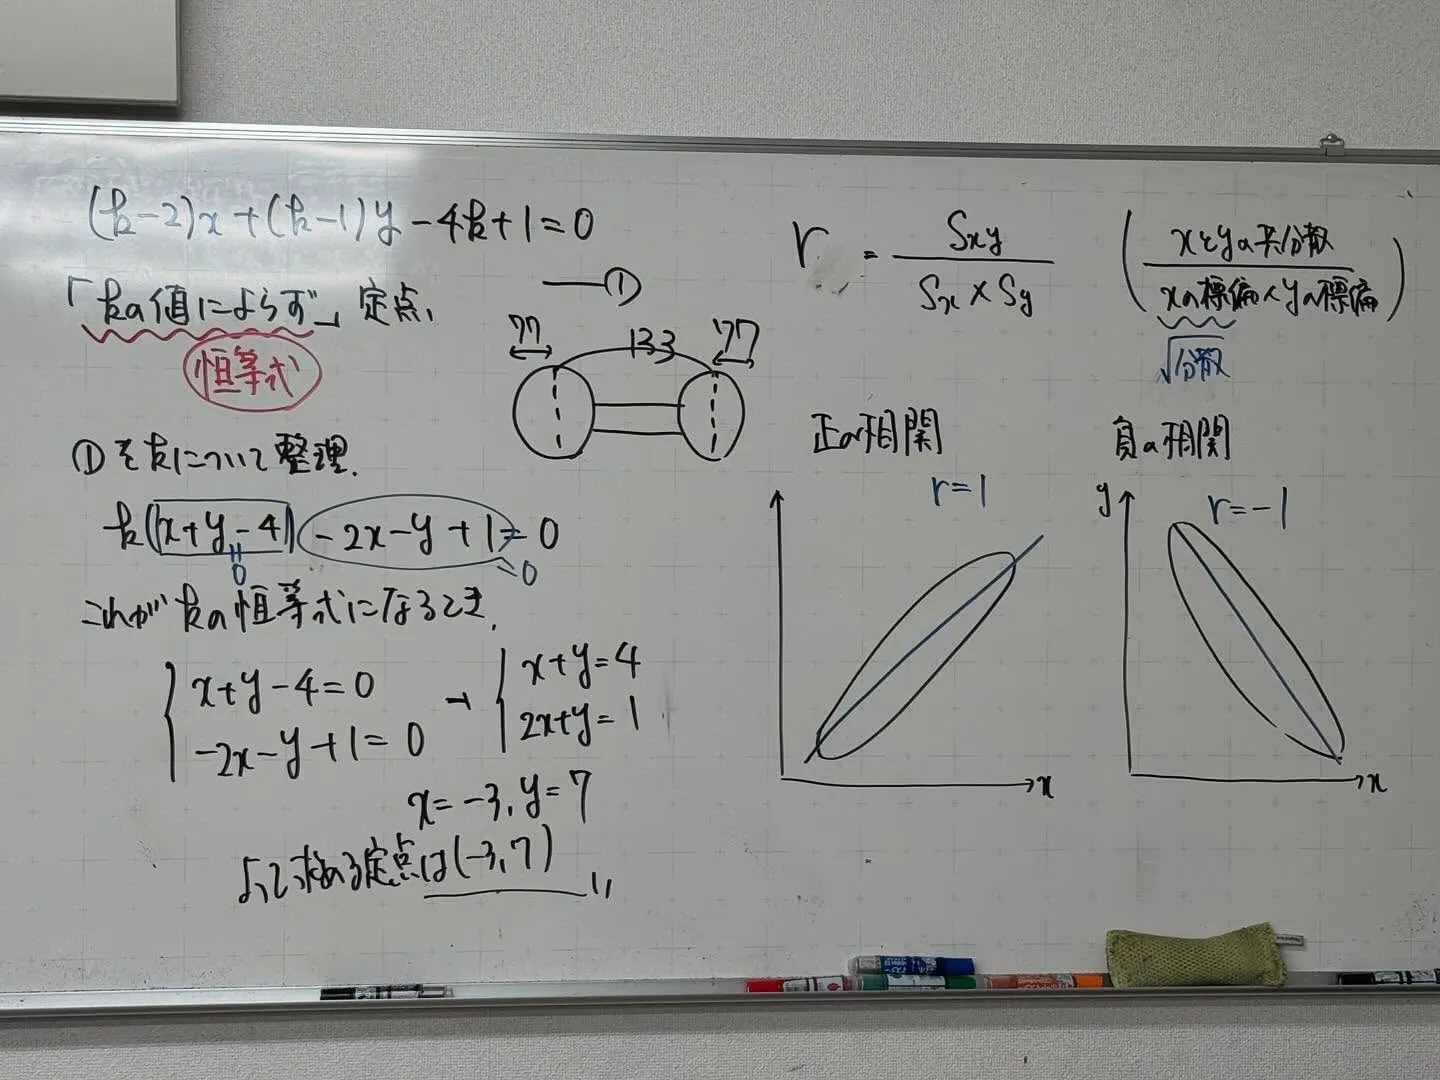 (k-2)x+(k-1)y-4k+1=0
①
「kの値によらず」定点、
恒等式
77 133 77
①をkについて整理.
k(x+y-4)-2x-y+1=0
=0
=0
これがkの恒等式になるとき.
x+y-4=0
-2x-y+1=0
→
x+y=4
2x+y=1
x=-3, y=7
よって求める定点は(-3,7)
r = Sxy / Sx×Sy
(xとyの共分散 / xの標偏×yの標偏)
√分散
正の相関
r=1
x
負の相関
y
r=-1
x